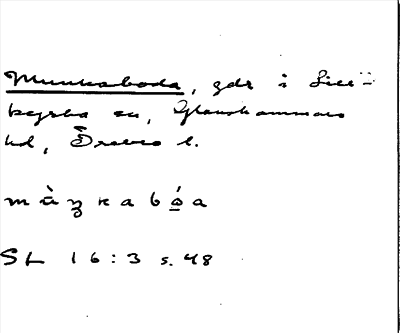 Munkaboda, gdr i Lill-
kyrka sn, Glanshammars
hd, Örebro l.
SL 16:3 s. 48